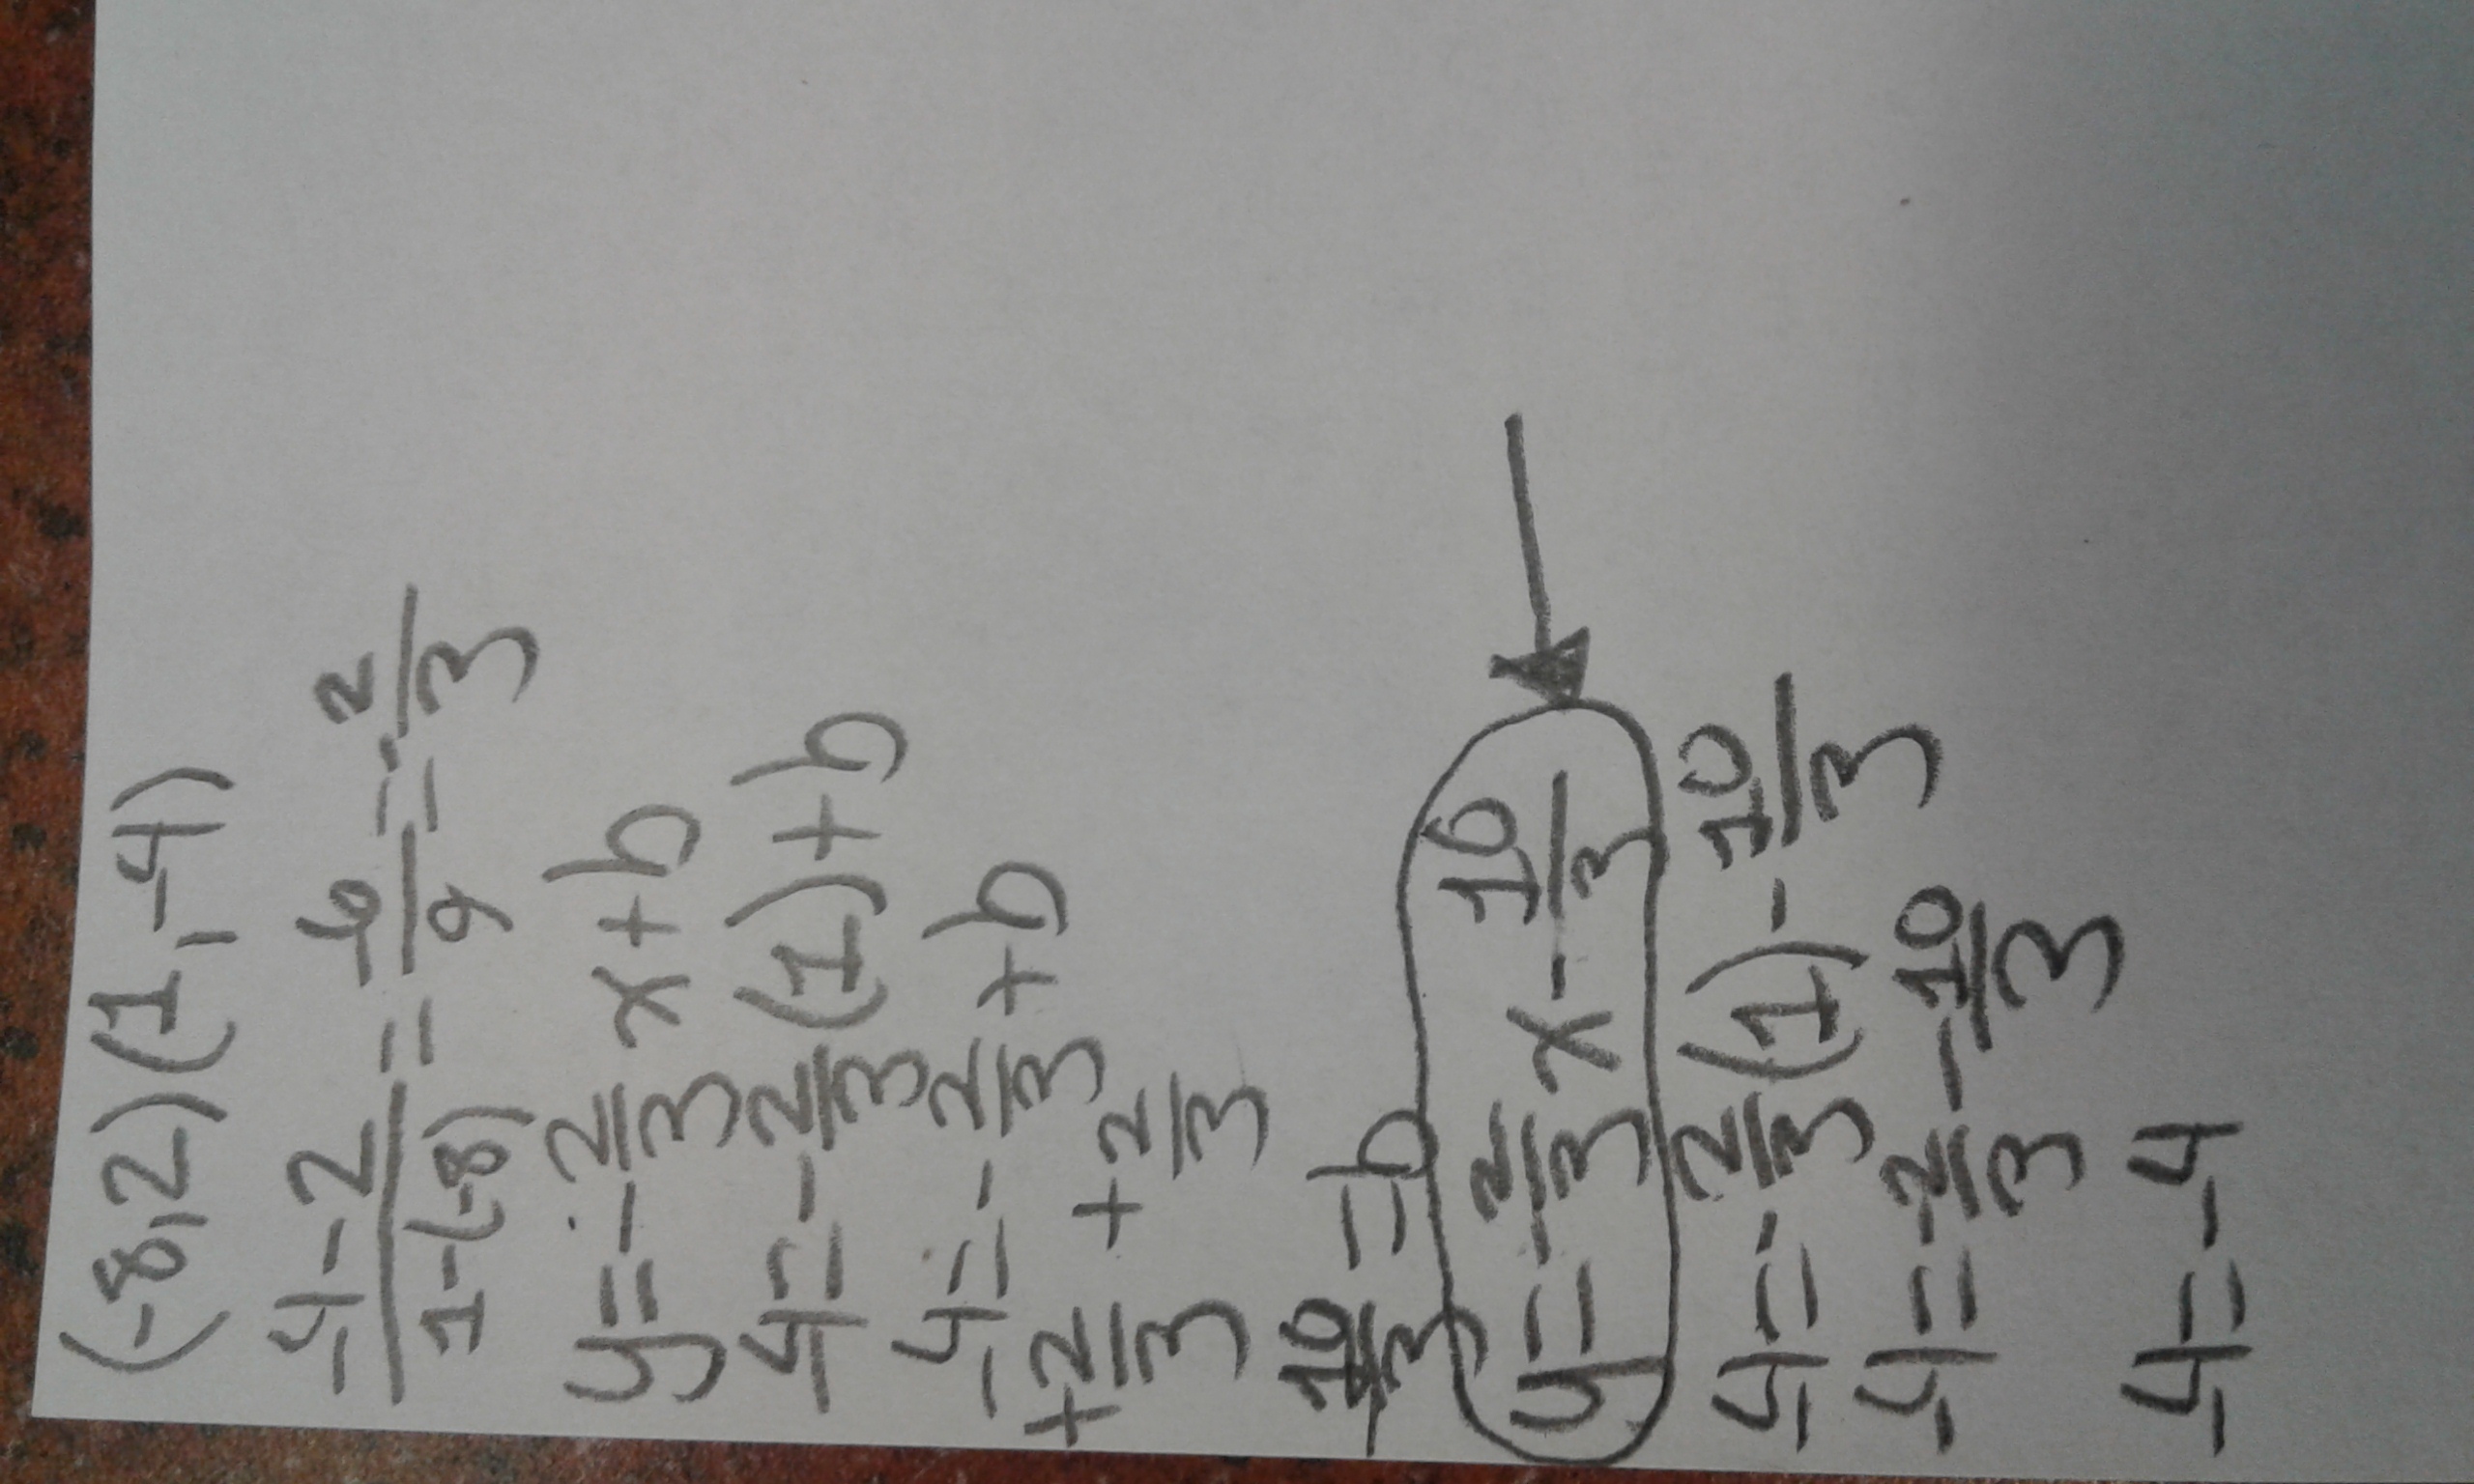 (-8,2)(1,-4)
-4-2/1-(-8) = -6/9 = -2/3
y = -2/3 x + b
-4 = -2/3 (1) + b
-4 = -2/3 + b
+2/3 +2/3
-10/3 = b
y = -2/3 x - 10/3
-4 = -2/3 (1) - 10/3
-4 = -2/3 - 10/3
-4 = -4